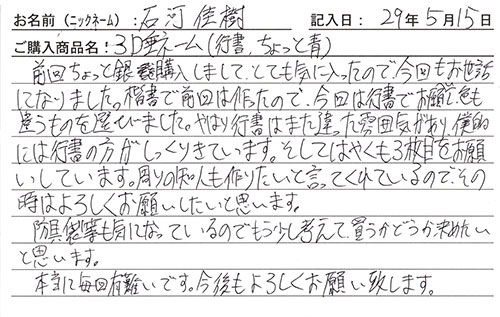 お名前(ニックネーム): 石河 佳樹 記入日: 29年5月15日
ご購入商品名: 3D垂ネーム(行書、ちょっと青)
前回ちょっと銀を購入しまして、とても気に入ったので、今回もお世話
になりました。楷書で前回は作ったので、今回は行書でお願いし色も
違うものを選びました。やはり行書はまた違った雰囲気があり、僕的
には行書の方がしっくりきています。そしてはやくも3枚目をお願
いしています。周りの知人も作りたいと言ってくれているので、その
時はよろしくお願いしたいと思います。
防具袋等も気になっているのでもう少し考えて、買うかどうか決めたい
と思います。
本当に毎回有難いです。今後もよろしくお願い致します。